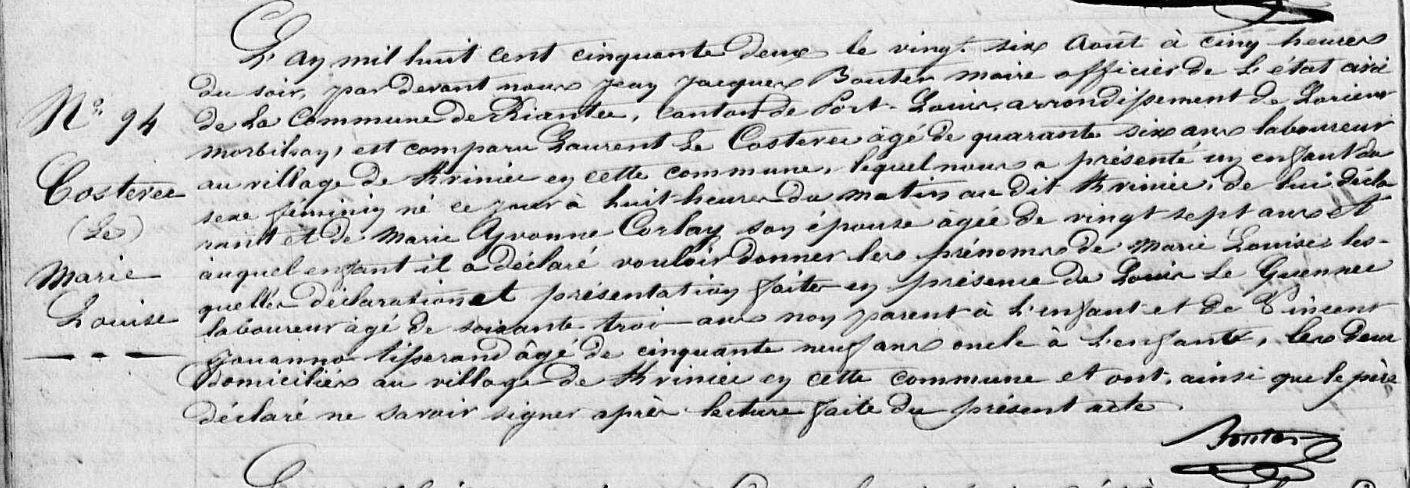 N.° 94
Costevec
(Le)
Marie
Louise
L'an mil huit cent cinquante deux le vingt six août à cinq heures
du soir, par devant nous Jean Jacques Bouter maire officier de l'état civil
de la commune de Riantec, canton de Port-Louis, arrondissement de Lorient
Morbihan, est comparu Laurent Le Costevec âgé de quarante six ans laboureur
au village de en cette commune, lequel nous a présenté un enfant du
sexe féminin né ce jour à huit heures du matin au dit de lui décla
rant et de Marie Yvonne Corlay son épouse âgée de vingt sept ans et
auquel enfant il a déclaré vouloir donner les prénoms de Marie Louise les-
quelles déclaration et présentation faites en présence de Louis Le Guennec
laboureur âgé de soixante trois ans non parent à l'enfant et de Vincent
Jouanno tisserand âgé de cinquante neuf ans oncle à l'enfant, les deux
domiciliés au village de en cette commune et ont, ainsi que le père
déclaré ne savoir signer après lecture faite du présent acte.
Bouter